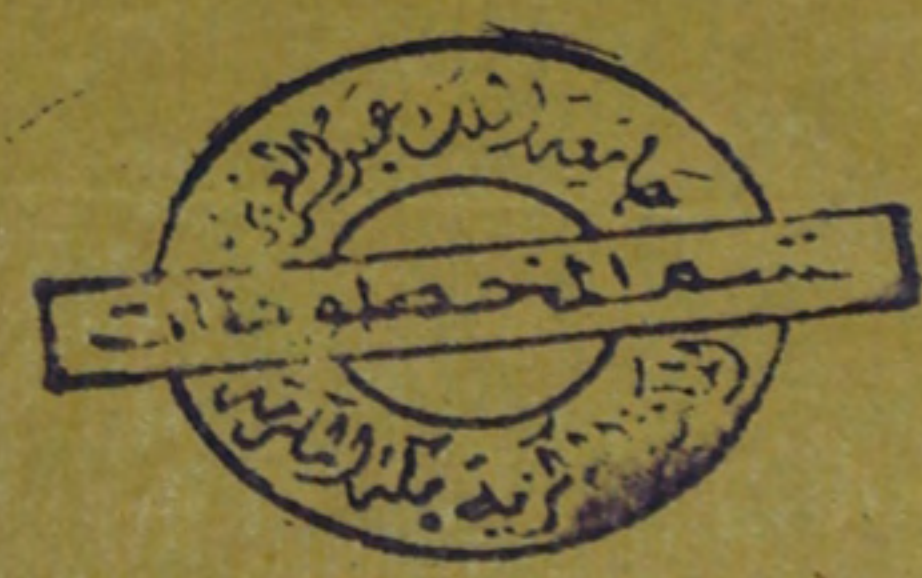 جامعة الملك عبد العزيز
قسم المخطوطات
المركزية بمكة المكرمة